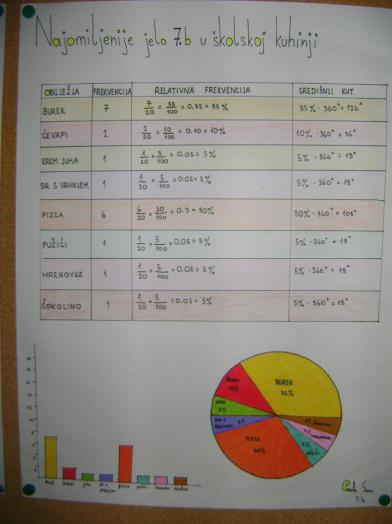 Najomiljenije jelo 7.b u školskoj kuhinji
OBILJEŽJA FREKVENCIJA RELATIVNA FREKVENCIJA SREDIŠNJI KUT
BUREK 7 7/20 = 35/100 = 0.35 = 35% 35% · 360° = 126°
ĆEVAPI 2 2/20 = 10/100 = 0.10 = 10% 10% · 360° = 36°
KREM JUHA 1 1/20 = 5/100 = 0.05 = 5% 5% · 360° = 18°
SIR S VRHNJEM 1 1/20 = 5/100 = 0.05 = 5% 5% · 360° = 18°
PIZZA 6 6/20 = 30/100 = 0.3 = 30% 30% · 360° = 108°
PUŽIĆI 1 1/20 = 5/100 = 0.05 = 5% 5% · 360° = 18°
HRENOVKE 1 1/20 = 5/100 = 0.05 = 5% 5% · 360° = 18°
ČOKOLINO 1 1/20 = 5/100 = 0.05 = 5% 5% · 360° = 18°
BUREK
35%
10%
5%
PIZZA
30%
7.b